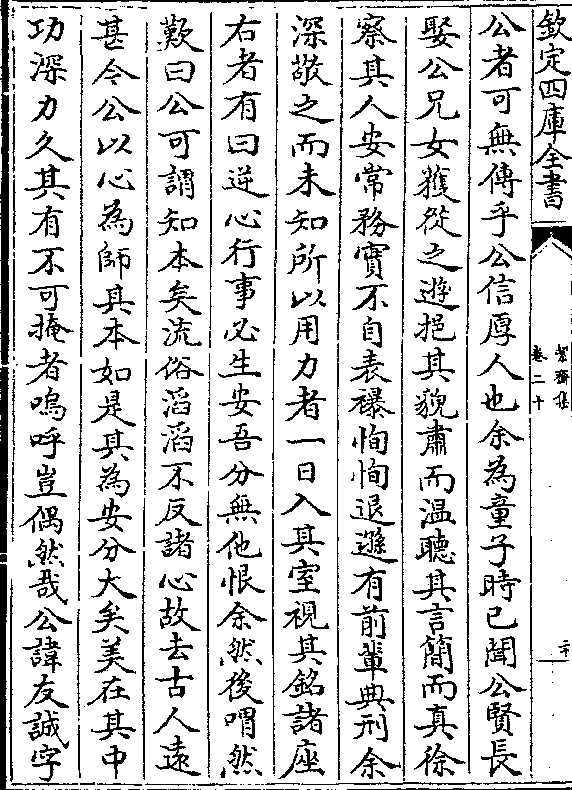 欽定四庫全書
絜齋集
卷二十
二十
公者可無傳乎公信厚人也余為童子時已聞公賢長
娶公兄女蒦從之遊挹其貌肅而温聽其言簡而真徐
察其人安常務實不自表襮恂恂退遜有前輩典刑余
深敬之而未知所以用力者一日入其室視其銘諸座
右者有曰逆心行事必生安吾分無他恨余然後喟然
歎曰公可謂知本矣流俗滔滔不反諸心故去古人遠
甚今公以心為師其本如是其為安分大矣美在其中
功深力久其有不可掩者嗚呼豈偶然哉公諱友誠字